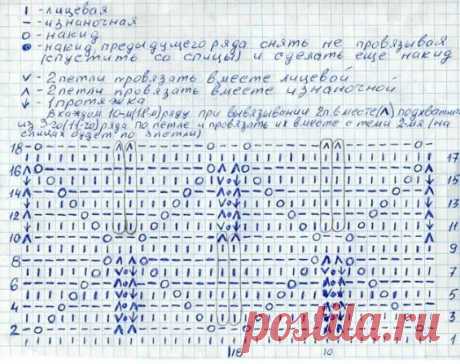 I - лицевая
— - изнаночная
o - накид
● - накид предыдущего ряда снять не провязывая
(спустить со спицы) и сделать еще накид
v - 2 петли провязать вместе лицевой
ʌ - 2 петли провязать вместе изнаночной
↓ - 1 протяжка
В каждом 10-м (11-м) ряду при вывязывании 2п. вместе (ʌ) подхватить
из 3-го (11-го) ряда по петле и провязать их вместе с теми 2-мя (на
спицах будет по 3 петли)
18
17
16
15
14
13
12
11
10
9
8
7
6
5
4
3
2
1
10
postila.ru